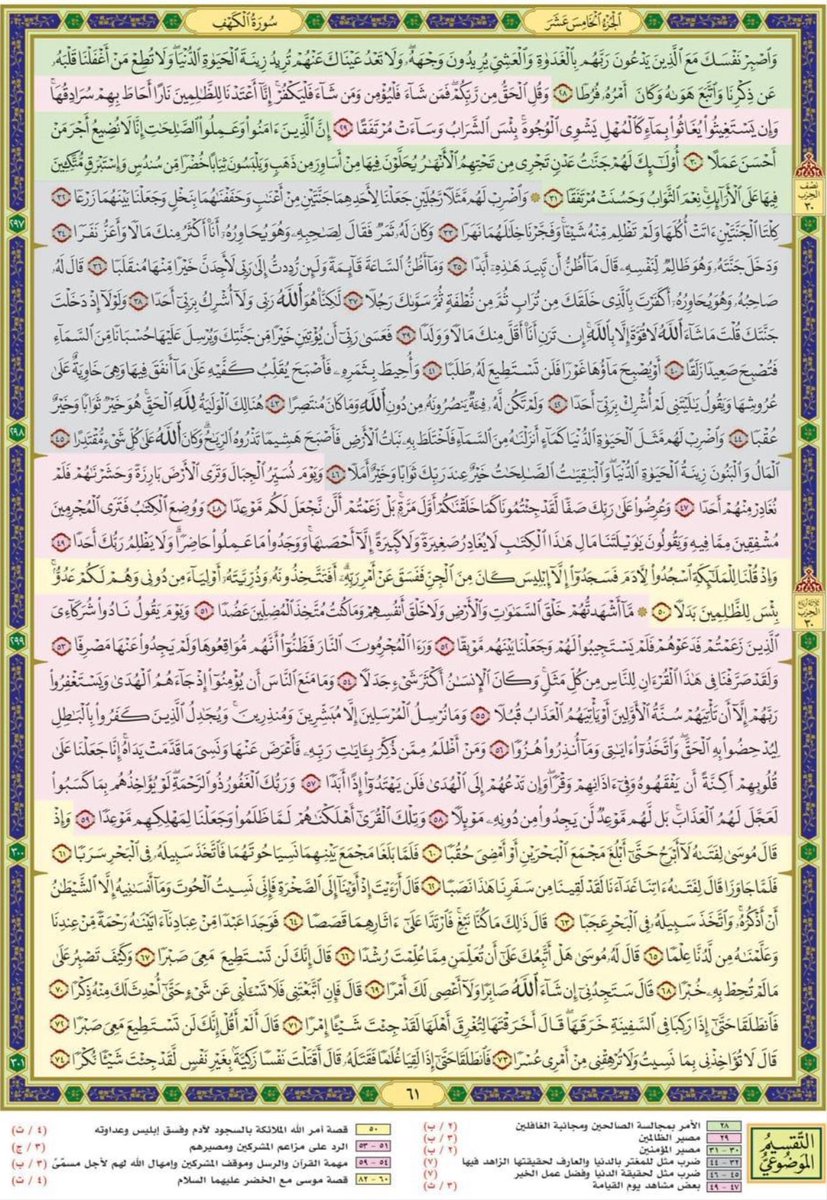 الجزء الخامس عشر
سورة الكهف
وَاصْبِرْ نَفْسَكَ مَعَ الَّذِينَ يَدْعُونَ رَبَّهُم بِالْغَدَوٰةِ وَالْعَشِيِّ يُرِيدُونَ وَجْهَهُۥ وَلَا تَعْدُ عَيْنَاكَ عَنْهُمْ تُرِيدُ زِينَةَ الْحَيَوٰةِ الدُّنْيَا وَلَا تُطِعْ مَنْ أَغْفَلْنَا قَلْبَهُۥ
عَن ذِكْرِنَا وَاتَّبَعَ هَوَىٰهُ وَكَانَ أَمْرُهُۥ فُرُطًا ٢٨ وَقُلِ الْحَقُّ مِن رَّبِّكُمْ فَمَن شَآءَ فَلْيُؤْمِن وَمَن شَآءَ فَلْيَكْفُرْ إِنَّآ أَعْتَدْنَا لِلظَّٰلِمِينَ نَارًا أَحَاطَ بِهِمْ سُرَادِقُهَا
وَإِن يَسْتَغِيثُوا۟ يُغَاثُوا۟ بِمَآءٍ كَالْمُهْلِ يَشْوِى الْوُجُوهَ بِئْسَ الشَّرَابُ وَسَآءَتْ مُرْتَفَقًا ٢٩ إِنَّ الَّذِينَ ءَامَنُوا۟ وَعَمِلُوا۟ الصَّٰلِحَٰتِ إِنَّا لَا نُضِيعُ أَجْرَ مَنْ
أَحْسَنَ عَمَلًا ٣٠ أُو۟لَٰٓئِكَ لَهُمْ جَنَّٰتُ عَدْنٍ تَجْرِى مِن تَحْتِهِمُ الْأَنْهَٰرُ يُحَلَّوْنَ فِيهَا مِنْ أَسَاوِرَ مِن ذَهَبٍ وَيَلْبَسُونَ ثِيَابًا خُضْرًا مِّن سُندُسٍ وَإِسْتَبْرَقٍ مُّتَّكِـِٔينَ
فِيهَا عَلَى الْأَرَآئِكِ نِعْمَ الثَّوَابُ وَحَسُنَتْ مُرْتَفَقًا ٣١ ۞ وَاضْرِبْ لَهُم مَّثَلًا رَّجُلَيْنِ جَعَلْنَا لِأَحَدِهِمَا جَنَّتَيْنِ مِنْ أَعْنَٰبٍ وَحَفَفْنَٰهُمَا بِنَخْلٍ وَجَعَلْنَا بَيْنَهُمَا زَرْعًا ٣٢
كِلْتَا الْجَنَّتَيْنِ ءَاتَتْ أُكُلَهَا وَلَمْ تَظْلِم مِّنْهُ شَيْـًٔا وَفَجَّرْنَا خِلَٰلَهُمَا نَهَرًا ٣٣ وَكَانَ لَهُۥ ثَمَرٌ فَقَالَ لِصَٰحِبِهِۦ وَهُوَ يُحَاوِرُهُۥٓ أَنَا۠ أَكْثَرُ مِنكَ مَالًا وَأَعَزُّ نَفَرًا ٣٤
وَدَخَلَ جَنَّتَهُۥ وَهُوَ ظَالِمٌ لِّنَفْسِهِۦ قَالَ مَآ أَظُنُّ أَن تَبِيدَ هَٰذِهِۦٓ أَبَدًا ٣٥ وَمَآ أَظُنُّ السَّاعَةَ قَآئِمَةً وَلَئِن رُّدِدتُّ إِلَىٰ رَبِّى لَأَجِدَنَّ خَيْرًا مِّنْهَا مُنقَلَبًا ٣٦ قَالَ لَهُۥ
صَاحِبُهُۥ وَهُوَ يُحَاوِرُهُۥٓ أَكَفَرْتَ بِالَّذِى خَلَقَكَ مِن تُرَابٍ ثُمَّ مِن نُّطْفَةٍ ثُمَّ سَوَّىٰكَ رَجُلًا ٣٧ لَّٰكِنَّا۠ هُوَ اللَّهُ رَبِّى وَلَآ أُشْرِكُ بِرَبِّىٓ أَحَدًا ٣٨ وَلَوْلَآ إِذْ دَخَلْتَ
جَنَّتَكَ قُلْتَ مَا شَآءَ اللَّهُ لَا قُوَّةَ إِلَّا بِاللَّهِ إِن تَرَنِ أَنَا۠ أَقَلَّ مِنكَ مَالًا وَوَلَدًا ٣٩ فَعَسَىٰ رَبِّىٓ أَن يُؤْتِيَنِ خَيْرًا مِّن جَنَّتِكَ وَيُرْسِلَ عَلَيْهَا حُسْبَانًا مِّنَ السَّمَآءِ
فَتُصْبِحَ صَعِيدًا زَلَقًا ٤٠ أَوْ يُصْبِحَ مَآؤُهَا غَوْرًا فَلَن تَسْتَطِيعَ لَهُۥ طَلَبًا ٤١ وَأُحِيطَ بِثَمَرِهِۦ فَأَصْبَحَ يُقَلِّبُ كَفَّيْهِ عَلَىٰ مَآ أَنفَقَ فِيهَا وَهِىَ خَاوِيَةٌ عَلَىٰ
عُرُوشِهَا وَيَقُولُ يَٰلَيْتَنِى لَمْ أُشْرِكْ بِرَبِّىٓ أَحَدًا ٤٢ وَلَمْ تَكُن لَّهُۥ فِئَةٌ يَنصُرُونَهُۥ مِن دُونِ اللَّهِ وَمَا كَانَ مُنتَصِرًا ٤٣ هُنَالِكَ الْوَلَٰيَةُ لِلَّهِ الْحَقِّ هُوَ خَيْرٌ ثَوَابًا وَخَيْرٌ
عُقْبًا ٤٤ وَاضْرِبْ لَهُم مَّثَلَ الْحَيَوٰةِ الدُّنْيَا كَمَآءٍ أَنزَلْنَٰهُ مِنَ السَّمَآءِ فَاخْتَلَطَ بِهِۦ نَبَاتُ الْأَرْضِ فَأَصْبَحَ هَشِيمًا تَذْرُوهُ الرِّيَٰحُ وَكَانَ اللَّهُ عَلَىٰ كُلِّ شَىْءٍ مُّقْتَدِرًا ٤٥
الْمَالُ وَالْبَنُونَ زِينَةُ الْحَيَوٰةِ الدُّنْيَا وَالْبَٰقِيَٰتُ الصَّٰلِحَٰتُ خَيْرٌ عِندَ رَبِّكَ ثَوَابًا وَخَيْرٌ أَمَلًا ٤٦ وَيَوْمَ نُسَيِّرُ الْجِبَالَ وَتَرَى الْأَرْضَ بَارِزَةً وَحَشَرْنَٰهُمْ فَلَمْ
نُغَادِرْ مِنْهُمْ أَحَدًا ٤٧ وَعُرِضُوا۟ عَلَىٰ رَبِّكَ صَفًّا لَّقَدْ جِئْتُمُونَا كَمَا خَلَقْنَٰكُمْ أَوَّلَ مَرَّةٍ بَلْ زَعَمْتُمْ أَلَّن نَّجْعَلَ لَكُم مَّوْعِدًا ٤٨ وَوُضِعَ الْكِتَٰبُ فَتَرَى الْمُجْرِمِينَ
مُشْفِقِينَ مِمَّا فِيهِ وَيَقُولُونَ يَٰوَيْلَتَنَا مَالِ هَٰذَا الْكِتَٰبِ لَا يُغَادِرُ صَغِيرَةً وَلَا كَبِيرَةً إِلَّآ أَحْصَىٰهَا وَوَجَدُوا۟ مَا عَمِلُوا۟ حَاضِرًا وَلَا يَظْلِمُ رَبُّكَ أَحَدًا ٤٩
وَإِذْ قُلْنَا لِلْمَلَٰٓئِكَةِ اسْجُدُوا۟ لِـَٔادَمَ فَسَجَدُوٓا۟ إِلَّآ إِبْلِيسَ كَانَ مِنَ الْجِنِّ فَفَسَقَ عَنْ أَمْرِ رَبِّهِۦٓ أَفَتَتَّخِذُونَهُۥ وَذُرِّيَّتَهُۥٓ أَوْلِيَآءَ مِن دُونِى وَهُمْ لَكُمْ عَدُوٌّ
بِئْسَ لِلظَّٰلِمِينَ بَدَلًا ٥٠ ۞ مَّآ أَشْهَدتُّهُمْ خَلْقَ السَّمَٰوَٰتِ وَالْأَرْضِ وَلَا خَلْقَ أَنفُسِهِمْ وَمَا كُنتُ مُتَّخِذَ الْمُضِلِّينَ عَضُدًا ٥١ وَيَوْمَ يَقُولُ نَادُوا۟ شُرَكَآءِىَ
الَّذِينَ زَعَمْتُمْ فَدَعَوْهُمْ فَلَمْ يَسْتَجِيبُوا۟ لَهُمْ وَجَعَلْنَا بَيْنَهُم مَّوْبِقًا ٥٢ وَرَءَا الْمُجْرِمُونَ النَّارَ فَظَنُّوٓا۟ أَنَّهُم مُّوَاقِعُوهَا وَلَمْ يَجِدُوا۟ عَنْهَا مَصْرِفًا ٥٣
وَلَقَدْ صَرَّفْنَا فِى هَٰذَا الْقُرْءَانِ لِلنَّاسِ مِن كُلِّ مَثَلٍ وَكَانَ الْإِنسَٰنُ أَكْثَرَ شَىْءٍ جَدَلًا ٥٤ وَمَا مَنَعَ النَّاسَ أَن يُؤْمِنُوٓا۟ إِذْ جَآءَهُمُ الْهُدَىٰ وَيَسْتَغْفِرُوا۟
رَبَّهُمْ إِلَّآ أَن تَأْتِيَهُمْ سُنَّةُ الْأَوَّلِينَ أَوْ يَأْتِيَهُمُ الْعَذَابُ قُبُلًا ٥٥ وَمَا نُرْسِلُ الْمُرْسَلِينَ إِلَّا مُبَشِّرِينَ وَمُنذِرِينَ وَيُجَٰدِلُ الَّذِينَ كَفَرُوا۟ بِالْبَٰطِلِ
لِيُدْحِضُوا۟ بِهِ الْحَقَّ وَاتَّخَذُوٓا۟ ءَايَٰتِى وَمَآ أُنذِرُوا۟ هُزُوًا ٥٦ وَمَنْ أَظْلَمُ مِمَّن ذُكِّرَ بِـَٔايَٰتِ رَبِّهِۦ فَأَعْرَضَ عَنْهَا وَنَسِىَ مَا قَدَّمَتْ يَدَاهُ إِنَّا جَعَلْنَا عَلَىٰ
قُلُوبِهِمْ أَكِنَّةً أَن يَفْقَهُوهُ وَفِىٓ ءَاذَانِهِمْ وَقْرًا وَإِن تَدْعُهُمْ إِلَى الْهُدَىٰ فَلَن يَهْتَدُوٓا۟ إِذًا أَبَدًا ٥٧ وَرَبُّكَ الْغَفُورُ ذُو الرَّحْمَةِ لَوْ يُؤَاخِذُهُم بِمَا كَسَبُوا۟
لَعَجَّلَ لَهُمُ الْعَذَابَ بَل لَّهُم مَّوْعِدٌ لَّن يَجِدُوا۟ مِن دُونِهِۦ مَوْئِلًا ٥٨ وَتِلْكَ الْقُرَىٰٓ أَهْلَكْنَٰهُمْ لَمَّا ظَلَمُوا۟ وَجَعَلْنَا لِمَهْلِكِهِم مَّوْعِدًا ٥٩ وَإِذْ
قَالَ مُوسَىٰ لِفَتَىٰهُ لَآ أَبْرَحُ حَتَّىٰٓ أَبْلُغَ مَجْمَعَ الْبَحْرَيْنِ أَوْ أَمْضِىَ حُقُبًا ٦٠ فَلَمَّا بَلَغَا مَجْمَعَ بَيْنِهِمَا نَسِيَا حُوتَهُمَا فَاتَّخَذَ سَبِيلَهُۥ فِى الْبَحْرِ سَرَبًا ٦١
فَلَمَّا جَاوَزَا قَالَ لِفَتَىٰهُ ءَاتِنَا غَدَآءَنَا لَقَدْ لَقِينَا مِن سَفَرِنَا هَٰذَا نَصَبًا ٦٢ قَالَ أَرَءَيْتَ إِذْ أَوَيْنَآ إِلَى الصَّخْرَةِ فَإِنِّى نَسِيتُ الْحُوتَ وَمَآ أَنسَىٰنِيهُ إِلَّا الشَّيْطَٰنُ
أَنْ أَذْكُرَهُۥ وَاتَّخَذَ سَبِيلَهُۥ فِى الْبَحْرِ عَجَبًا ٦٣ قَالَ ذَٰلِكَ مَا كُنَّا نَبْغِ فَارْتَدَّا عَلَىٰٓ ءَاثَارِهِمَا قَصَصًا ٦٤ فَوَجَدَا عَبْدًا مِّنْ عِبَادِنَآ ءَاتَيْنَٰهُ رَحْمَةً مِّنْ عِندِنَا
وَعَلَّمْنَٰهُ مِن لَّدُنَّا عِلْمًا ٦٥ قَالَ لَهُۥ مُوسَىٰ هَلْ أَتَّبِعُكَ عَلَىٰٓ أَن تُعَلِّمَنِ مِمَّا عُلِّمْتَ رُشْدًا ٦٦ قَالَ إِنَّكَ لَن تَسْتَطِيعَ مَعِىَ صَبْرًا ٦٧ وَكَيْفَ تَصْبِرُ عَلَىٰ
مَا لَمْ تُحِطْ بِهِۦ خُبْرًا ٦٨ قَالَ سَتَجِدُنِىٓ إِن شَآءَ اللَّهُ صَابِرًا وَلَآ أَعْصِى لَكَ أَمْرًا ٦٩ قَالَ فَإِنِ اتَّبَعْتَنِى فَلَا تَسْـَٔلْنِى عَن شَىْءٍ حَتَّىٰٓ أُحْدِثَ لَكَ مِنْهُ ذِكْرًا ٧٠
فَانطَلَقَا حَتَّىٰٓ إِذَا رَكِبَا فِى السَّفِينَةِ خَرَقَهَا قَالَ أَخَرَقْتَهَا لِتُغْرِقَ أَهْلَهَا لَقَدْ جِئْتَ شَيْـًٔا إِمْرًا ٧١ قَالَ أَلَمْ أَقُلْ إِنَّكَ لَن تَسْتَطِيعَ مَعِىَ صَبْرًا ٧٢
قَالَ لَا تُؤَاخِذْنِى بِمَا نَسِيتُ وَلَا تُرْهِقْنِى مِنْ أَمْرِى عُسْرًا ٧٣ فَانطَلَقَا حَتَّىٰٓ إِذَا لَقِيَا غُلَٰمًا فَقَتَلَهُۥ قَالَ أَقَتَلْتَ نَفْسًا زَكِيَّةًۢ بِغَيْرِ نَفْسٍ لَّقَدْ جِئْتَ شَيْـًٔا نُّكْرًا ٧٤
نصف الحزب ٣٠
ثلاثة أرباع الحزب ٣٠
٢٩٧
٢٩٨
٢٩٩
٣٠٠
٣٠١
٦١
التقسيم الموضوعي
٢٨ الأمر بمجالسة الصالحين ومجانبة الغافلين (٢ / ب)
٢٩ مصير الظالمين (٣ / ب)
٣٠ – ٣١ مصير المؤمنين (٢ / ب)
٣٢ – ٤٤ ضرب مثل للمغتر بالدنيا والعارف لحقيقتها الزاهد فيها (٧)
٤٥ – ٤٦ ضرب مثل لحقيقة الدنيا وفضل عمل الخير (٧)
٤٧ – ٤٩ بعض مشاهد يوم القيامة (٣ / ت)
٥٠ قصة أمر الله الملائكة بالسجود لآدم وفسق إبليس وعداوته (٤ / ت)
٥١ – ٥٣ الرد على مزاعم المشركين ومصيرهم (٣ / ج)
٥٤ – ٥٩ مهمة القرآن والرسل وموقف المشركين وإمهال الله لهم لأجل مسمّى (٣ / ب)
٦٠ – ٨٢ قصة موسى مع الخضر عليهما السلام (٤ / ت)